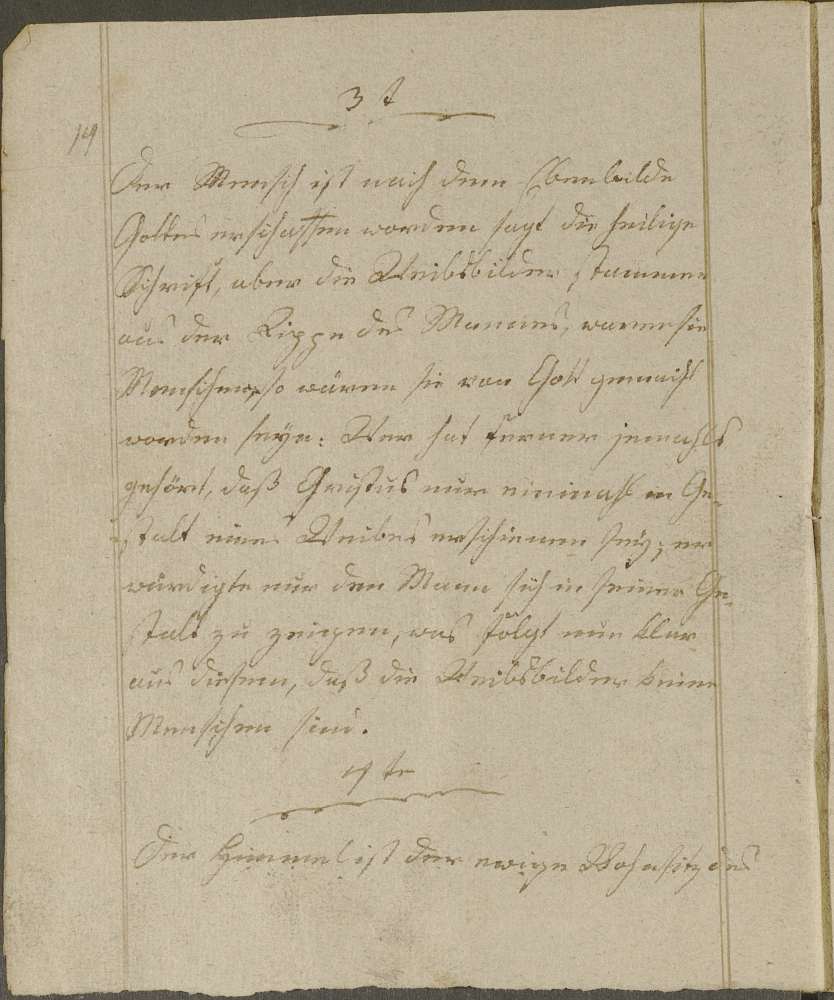 3 t
14
Der Mensch ist nach dem Ebenbilde
Gottes erschaffen worden sagt die heilige
Schrift, aber die Weibsbilder stammen
aus der Rippe des Mannes, waren sie
Menschen, so wären sie von Gott gemacht
worden seyn. Wer hat ferner jemahls
gehört, daß Christus nur einmahl in Ge-
stalt eines Weibes erschienen sey; er
würdigte nur den Mann sich in seiner Ge-
stalt zu zeigen, was folgt nun klar
aus diesem, daß die Weibsbilder keine
Menschen sind.
4 te
Der Himmel ist der ewige Wohnsitz des